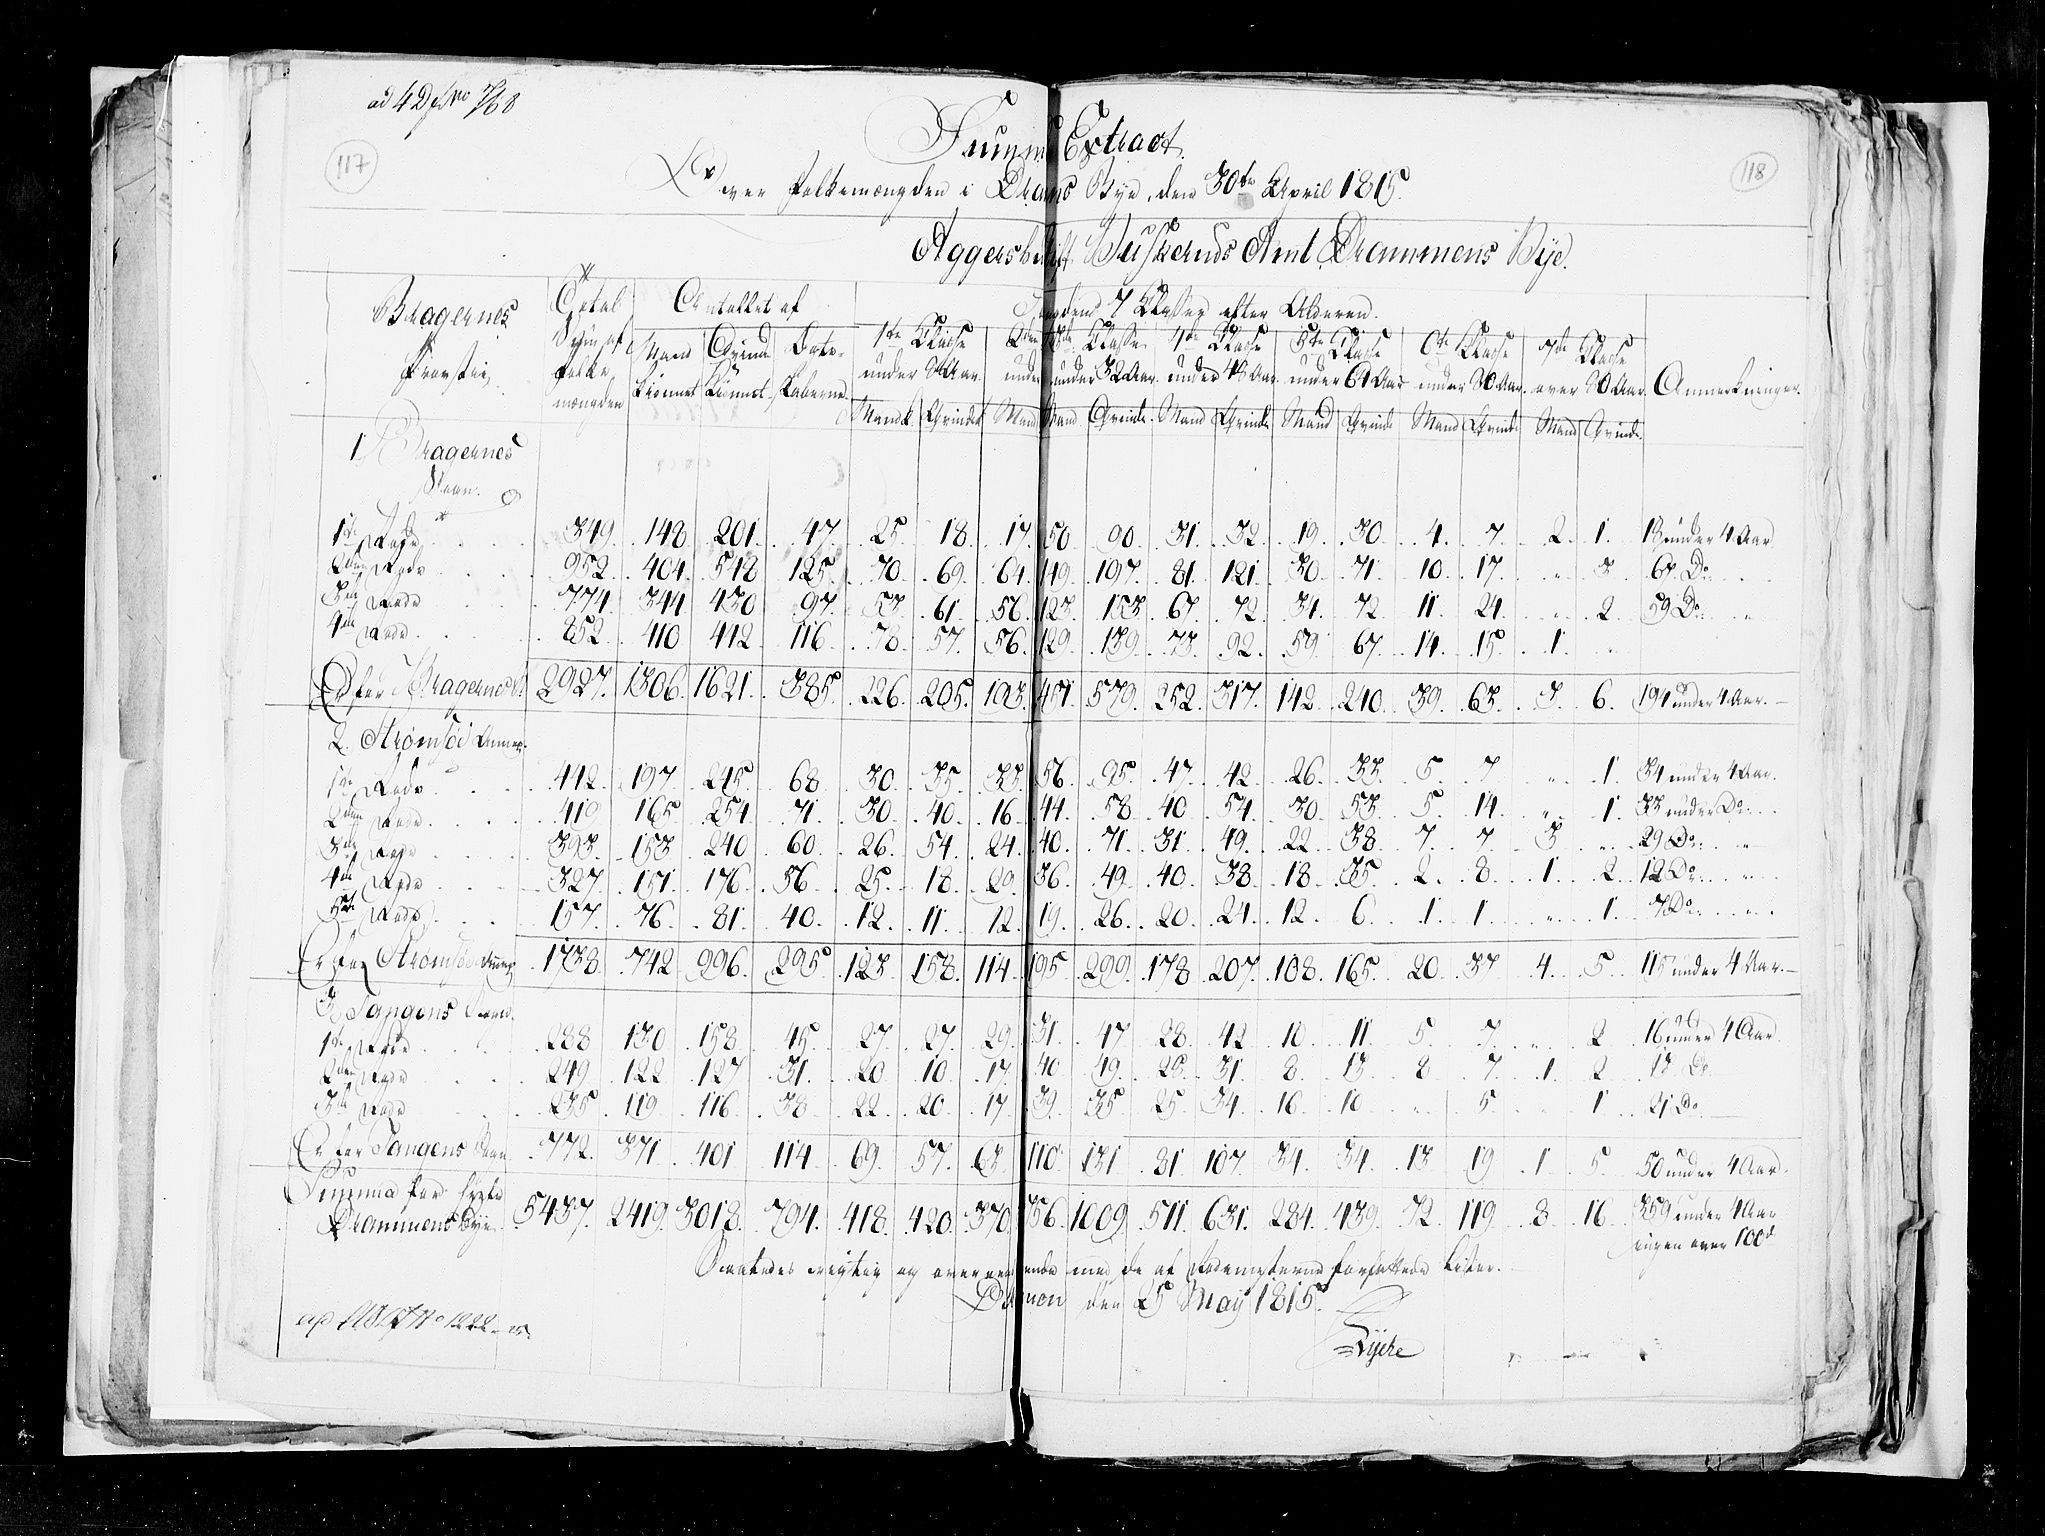 ad 4 D
117
118
Summ Extract
Over folkemængden i Bye, den 30te April 1815.
Aggersh Stift Buskeruds Amt Drammens Bye.
Bragernes Total Antallet af 7 Classer efter Alderen.
Provstie. folke mængden Mand Kiønnet Qvind Kiønnet 1te Classe under 8 Aar 2den under Classe under 32 Aar 4de Classe under 48 Aar 5te Classe under 64 Aar 6te Classe under 80 Aar 7de Classe over 80 Aar Anmerkninger.
Mand Qvinde Mand Mand Qvinde Mand Qvinde Mand Qvinde Mand Qvinde Mand Qvinde
1 Bragernes
Sogn.
1te Rode 349. 148 201. 47 25 18. 17. 50 90. 31. 32. 19. 30 4. 7 2. 1. 18 under 4 Aar
2den Rode 952. 404. 548 125. 70. 69. 64. 149. 197. 81. 121. 30. 71. 10. 17. " 3 Do
3die Rode 774. 344. 430 97. 53. 61. 56. 123. 153. 67. 72. 34. 72 11. 24. " 2 59 Do
4de Rode 852. 410 442. 116 78. 57. 56. 129. 139. 73. 92. 59. 67. 14. 15. 1. "
Er for Bragernes 2927. 1306. 1621. 385. 226. 205. 193. 451. 579. 252. 317. 142. 240. 39. 63. 3. 6. 191 under 4 Aar.
2. Strømsøe Annex.
1te Rode 442. 197. 245. 68 30. 35. 33. 56. 95. 47. 42. 26. 33. 5. 7 " 1. 34 under 4 Aar.
2den Rode 419 165 254. 71. 30. 40. 16. 44. 58 40. 54. 30. 53. 5. 14. " 1. 33 under Do
3die Rode 393. 153. 240. 60. 26. 54. 24. 40. 71. 31. 49. 22. 38 7. 7 3 " 29 Do
4de Rode 327. 151. 176. 56. 25. 18 29. 36. 49. 40. 38. 18. 35. 2. 8. 1. 2 12 Do
5te Rode 157. 76. 81. 40. 12. 11. 12. 19. 26. 20. 24. 12. 6. 1. 1. " 1. 7 Do
Er for Strømsøe Annex 1738. 742. 996. 295. 123. 158. 114. 195. 299. 178. 207. 108. 165. 20. 37 4. 5. 115 under 4 Aar.
3. Tangens Sogn.
1te Rode 288 130 158. 45. 27. 27. 29. 31. 47 28. 42. 10. 11. 5. 7. " 2 16 under 4 Aar.
2den Rode 249. 122 127 31. 20. 10. 17. 40 49. 28. 31. 8. 13 8 7 1. 2 13 Do
3die Rode 235. 119 116. 38 22. 20. 17. 39. 35. 25. 34. 16. 10 " 5 " 1 21 Do
Er for Tangens Sogn 772. 371. 401 114 69. 57. 63. 110 131 81. 107. 34. 34. 13 19 1 5. 50 under 4 Aar.
Summa for hele
Drammens Bye 5437. 2419. 3018. 794. 418. 420. 370. 756. 1009. 511. 631. 284. 439. 72. 119. 8. 16. 359 under 4 Aar
ingen over 100 d
Saaledes rigtig og overeens mende med de af Rodemesterne forfattede Lister.
den 25 May 1815.
No 1222